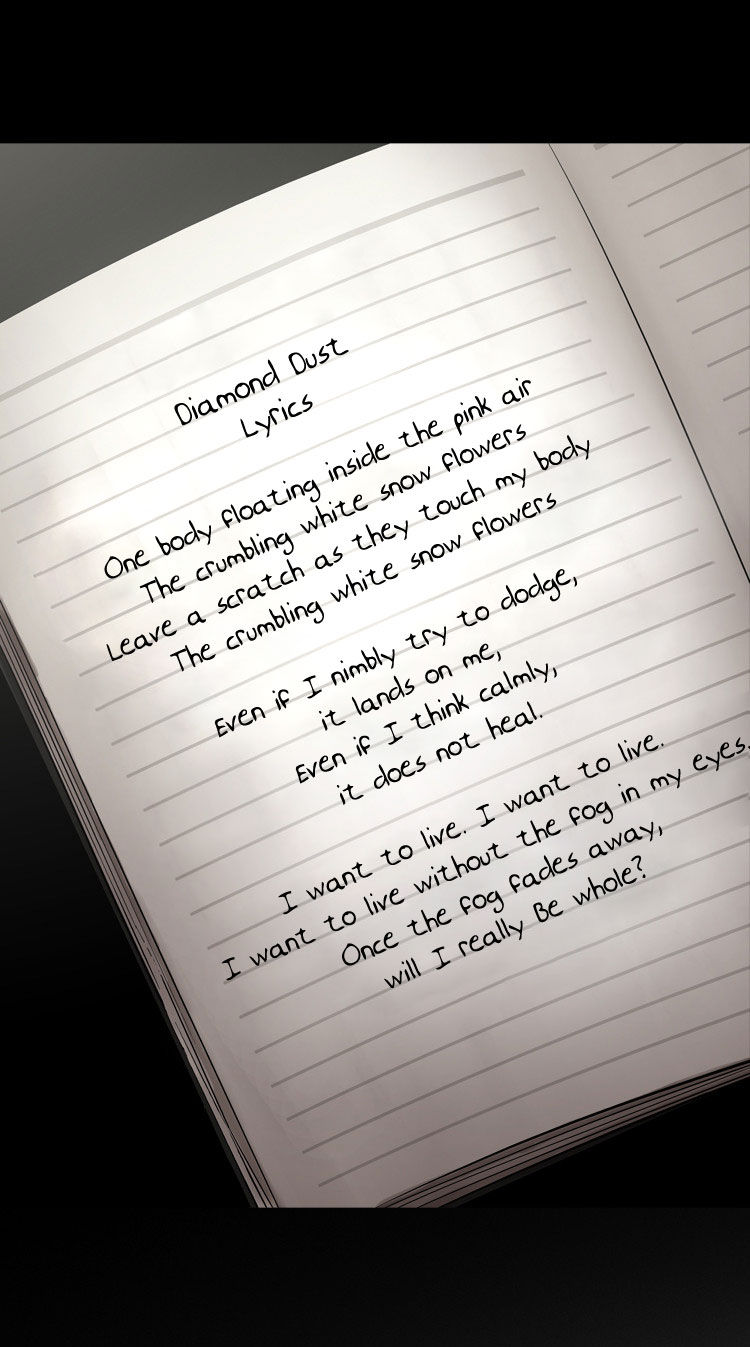 Diamond Dust
Lyrics
One body floating inside the pink air
The crumbling white snow flowers
Leave a scratch as they touch my body
The crumbling white snow flowers
Even if I nimbly try to dodge,
it lands on me,
Even if I think calmly,
it does not heal.
I want to live. I want to live.
I want to live without the fog in my eyes.
Once the fog fades away,
will I really Be whole?